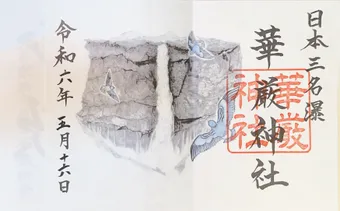 日本三名瀑
華厳神社
華厳神社
令和六年 五月十六日